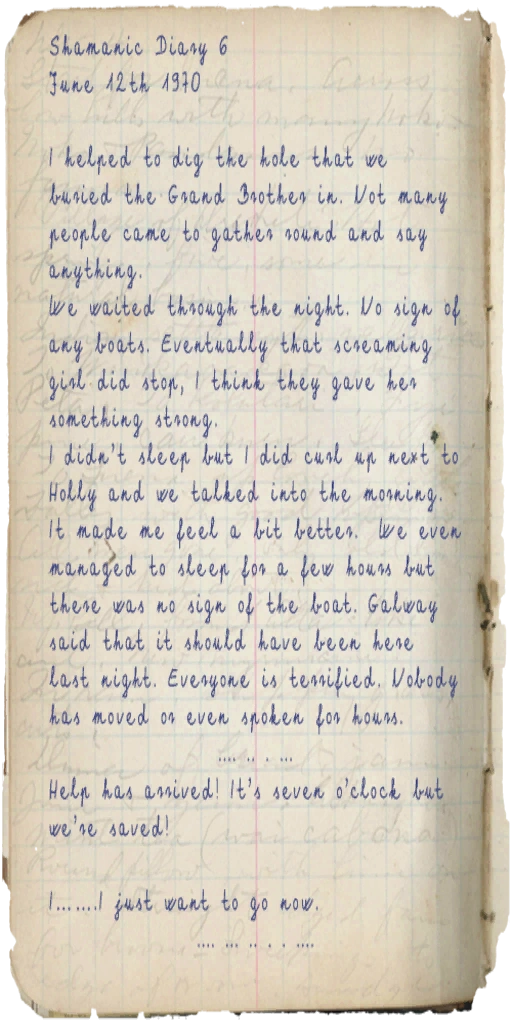 Shamanic Diary 6
June 12th 1970
I helped to dig the hole that we
buried the Grand Brother in. Not many
people came to gather round and say
anything.
We waited through the night. No sign of
any boats. Eventually that screaming
girl did stop, I think they gave her
something strong.
I didn't sleep but I did curl up next to
Holly and we talked into the morning.
It made me feel a bit better. We even
managed to sleep for a few hours but
there was no sign of the boat. Galway
said that it should have been here
last night. Everyone is terrified. Nobody
has moved or even spoken for hours.
.... .. . ...
Help has arrived! It's seven o'clock but
we're saved!
I.......I just want to go now.
.... ... .. . . ....